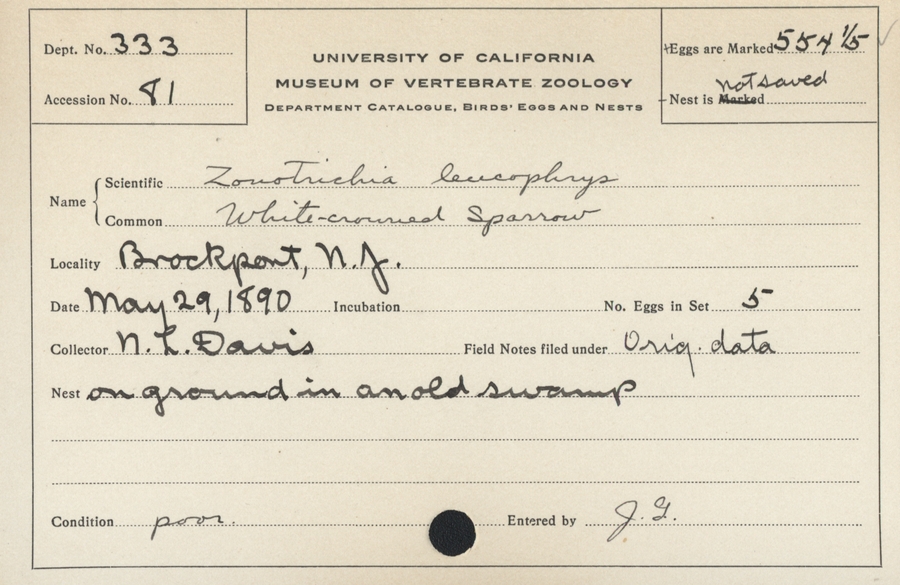 Dept. No. 333
Accession No. 81
UNIVERSITY OF CALIFORNIA
MUSEUM OF VERTEBRATE ZOOLOGY
DEPARTMENT CATALOGUE, BIRDS' EGGS AND NESTS
Eggs are Marked 554 1/5
not saved
Nest is Marked
Name
Scientific Zonotrichia leucophrys
Common White-crowned Sparrow
Locality Brockport, N.Y.
Date May 29, 1890 Incubation No. Eggs in Set 5
Collector N. L. Davis Field Notes filed under Orig. data
Nest on ground in an old swamp
Condition poor. Entered by J. G.